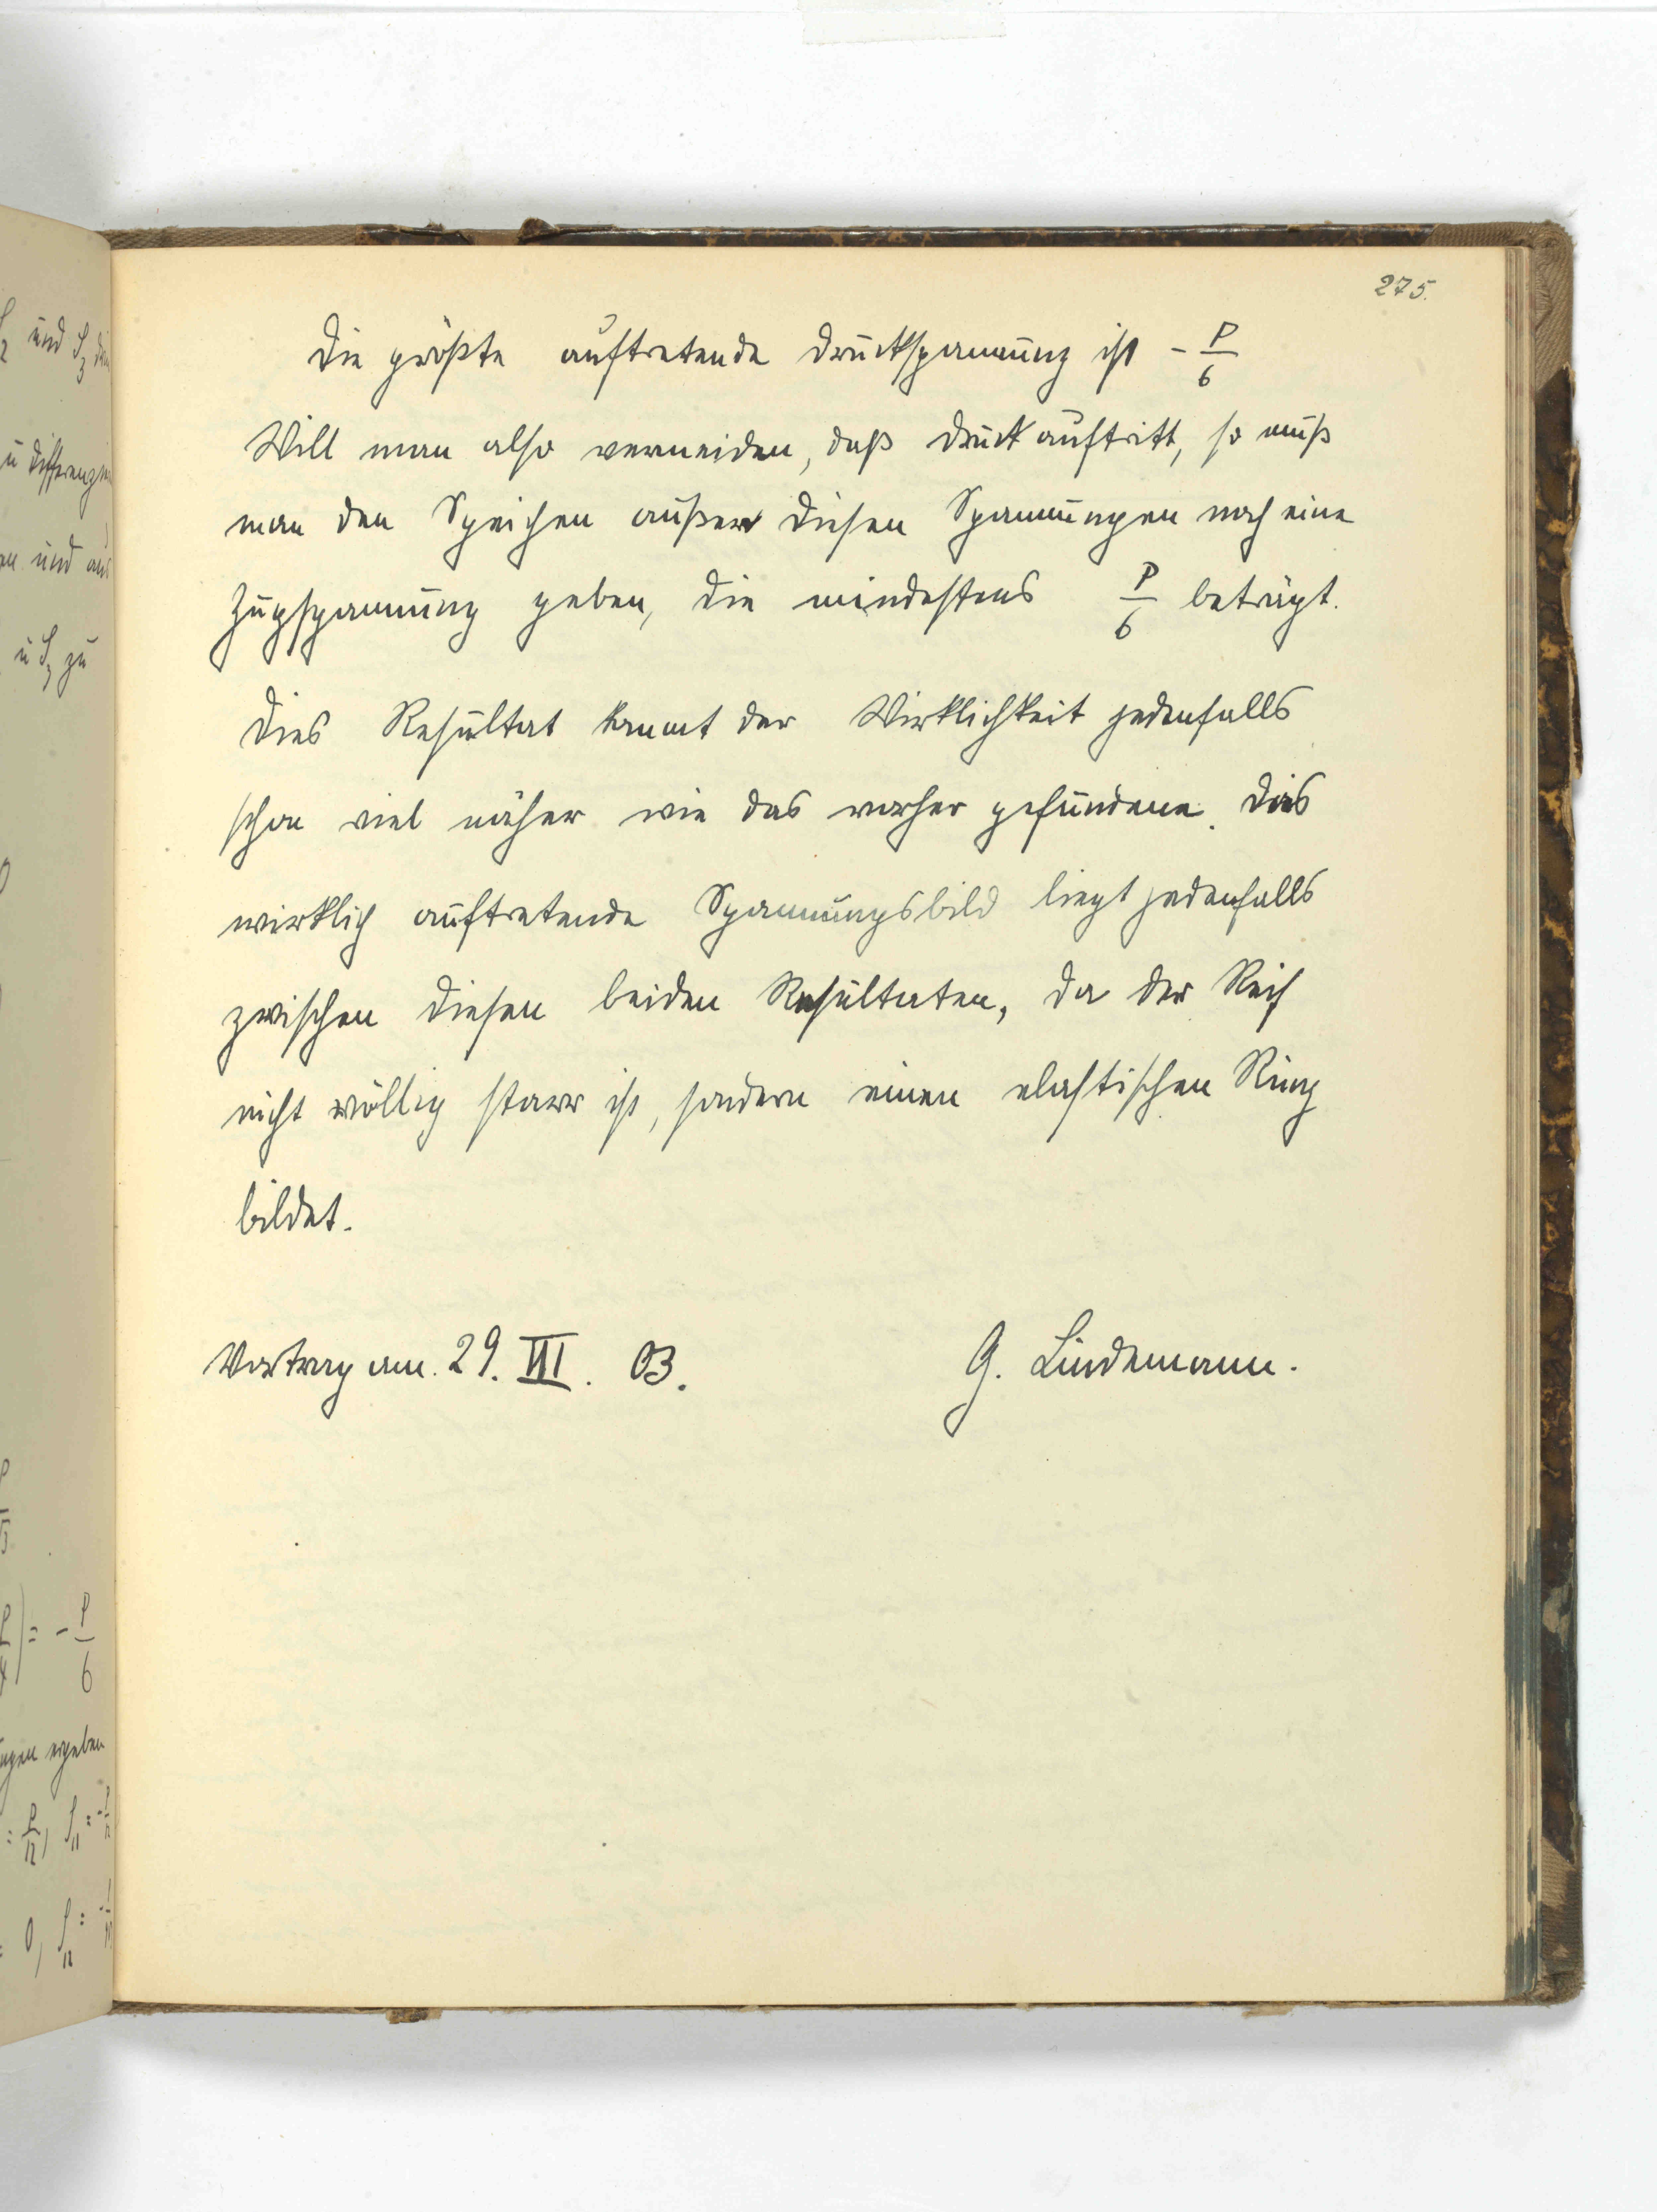 275.
Die größte auftretende Druckspannung ist - P/6
Will man also vermeiden, daß Druck auftritt, so muß
man den Speichen außer diesen Spannungen noch eine
Zugspannung geben, die mindestens P/6 beträgt.
Dies Resultat kommt der Wirklichkeit jedenfalls
schon viel näher wie das vorher gefundene. Das
wirklich auftretende Spannungsbild liegt jedenfalls
zwischen diesen beiden Resultaten, da der Reif
nicht völlig starr ist, sondern einen elastischen Ring
bildet.
Vortrag am. 29. VII. 03. G. Lindemann.
und
u
und aus
u S₃ zu
) = - P/6
ergeben
= P/12,
= 0,